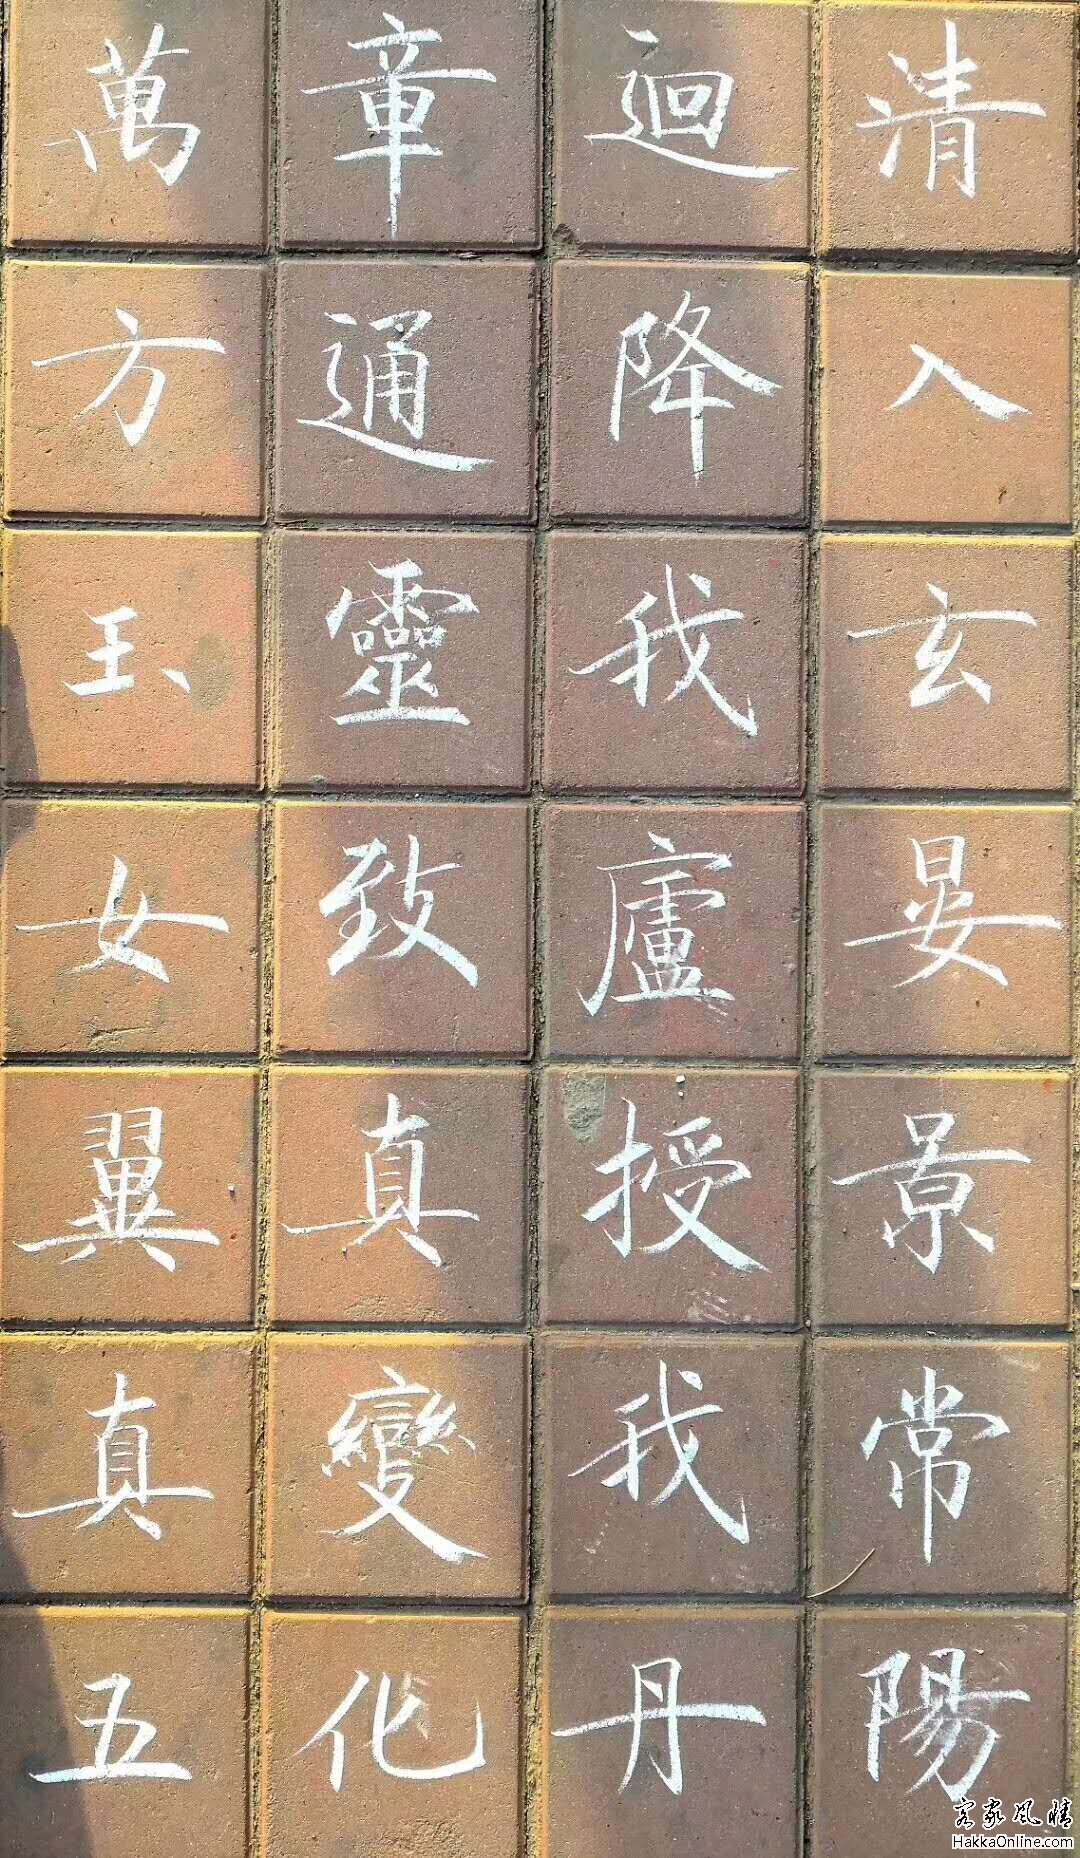 清入玄晏景常陽
迴降我廬授我丹
章通靈致真變化
萬方玉女翼真五
客家風情
HakkaOnline.com